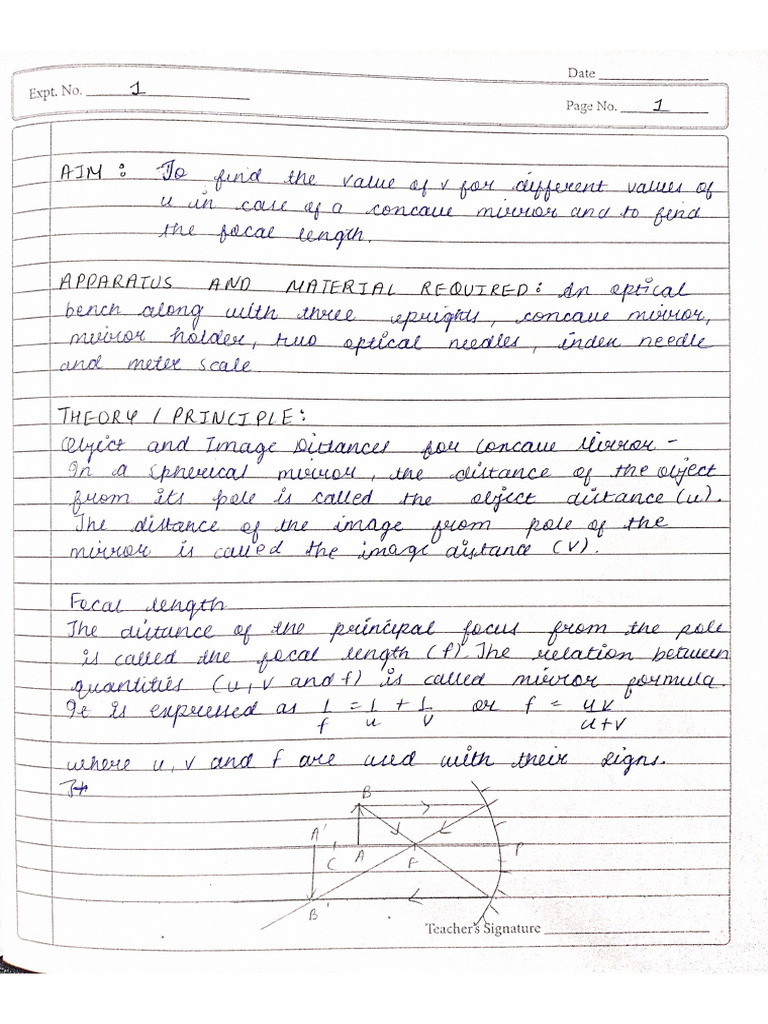 Date
Expt. No. 1
Page No. 1
AIM : To find the value of v for different values of
u in case of a concave mirror and to find
the focal length.
APPARATUS AND MATERIAL REQUIRED: An optical
bench along with three uprights, concave mirror,
mirror holder, two optical needles, index needle
and meter scale
THEORY / PRINCIPLE:
Object and Image Distances for Concave Mirror -
In a spherical mirror, the distance of the object
from its pole is called the object distance (u).
The distance of the image from pole of the
mirror is called the image distance (v).
Focal length
The distance of the principal focus from the pole
is called the focal length (f). The relation between
quantities (u, v and f) is called mirror formula.
It is expressed as 1/f = 1/u + 1/v or f = uv/u+v
where u, v and f are used with their signs.
B
A'
C A F P
B'
Teacher's Signature